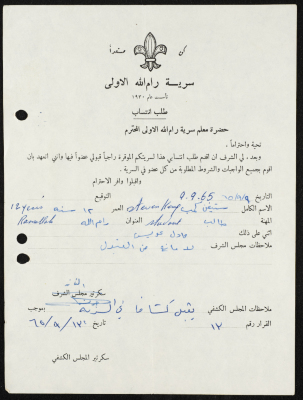 كن مستعداً
سرية رام الله الاولى
تأسست عام ١٩٢٠
طلب انتساب
حضرة معلم سرية رام الله الاولى المحترم
تحية واحتراماً،
وبعد، لي الشرف ان اقدم طلب انتسابي هذا لسريتكم الموقرة راجياً قبولي عضواً فيها وانني اتعهد بان
اقوم بجميع الواجبات والشروط المطلوبة من كل عضو في السرية.
واقبلوا وافر الاحترام
التاريخ ٦٥/٩/٩ 9.9.65 التوقيع
الاسم الكامل العمر ١٢ سنة 12 years
المهنة طالب student العنوان رام الله Ramallah
اثني على ذلك عادل
ملاحظات مجلس الشرف لا مانع من القبول
سكرتير مجلس الشرف
ملاحظات المجلس الكشفي يقبل كشافا في السرية بموجب
القرار رقم ١٧ تاريخ ٦٥/٩/١٢١
سكرتير المجلس الكشفي